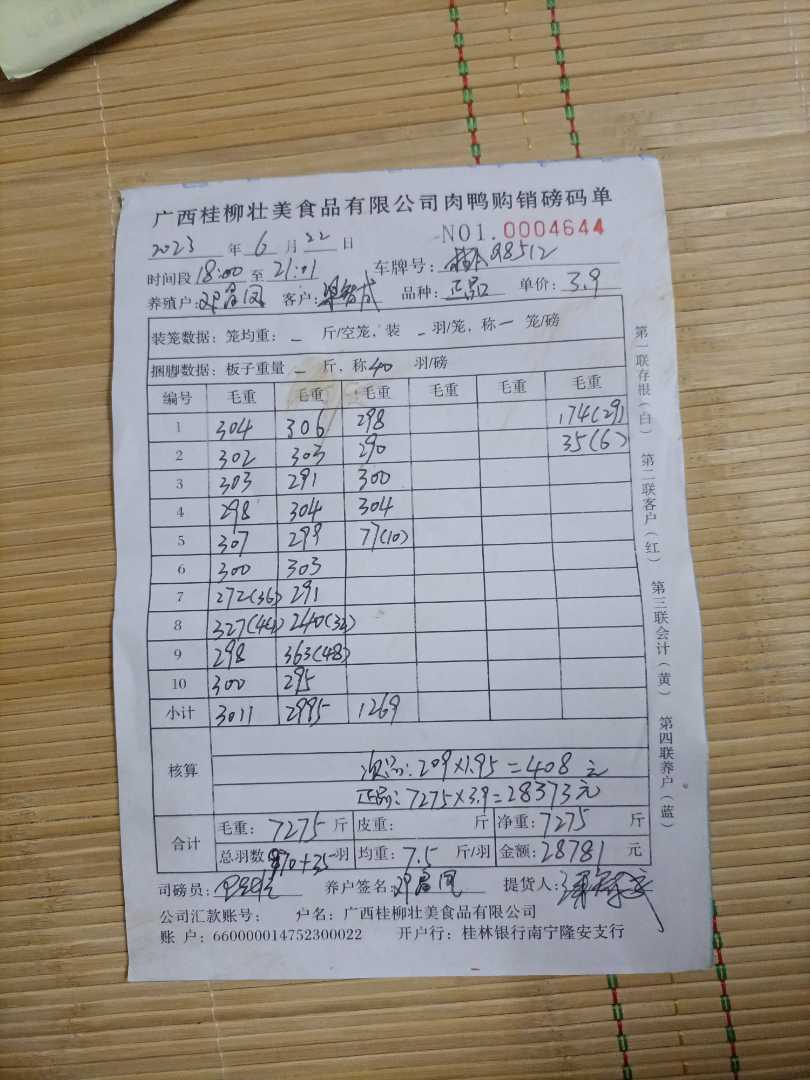 广西桂柳壮美食品有限公司肉鸭购销磅码单
NO1.0004644
2023 年 6 月 22 日
时间段 18:00 至 21:01 车牌号: 98512
养殖户: 邓 凤 客户: 品种: 正品 单价: 3.9
装笼数据: 笼均重: - 斤/空笼, 装 - 羽/笼, 称 一 笼/磅
捆脚数据: 板子重量 - 斤, 称 40 羽/磅
编号 毛重 毛重 毛重 毛重 毛重 毛重
1 304 306 298 174(29)
2 302 303 290 35(6)
3 303 291 300
4 298 304 304
5 307 299 77(10)
6 300 303
7 272(36) 291
8 327(44) 240(32)
9 298 363(48)
10 300 295
小计 3011 2995 1269
核算
次品: 209×1.95=408 元
正品: 7275×3.9=28373 元
合计 毛重: 7275 斤 皮重: 斤 净重: 7275 斤
总羽数 970+35 羽 均重: 7.5 斤/羽 金额: 28781 元
司磅员: 养户签名: 邓 凤 提货人:
公司汇款账号: 户名: 广西桂柳壮美食品有限公司
账 户: 660000014752300022 开户行: 桂林银行南宁隆安支行
第一联存根(白) 第二联客户(红) 第三联会计(黄) 第四联养户(蓝)